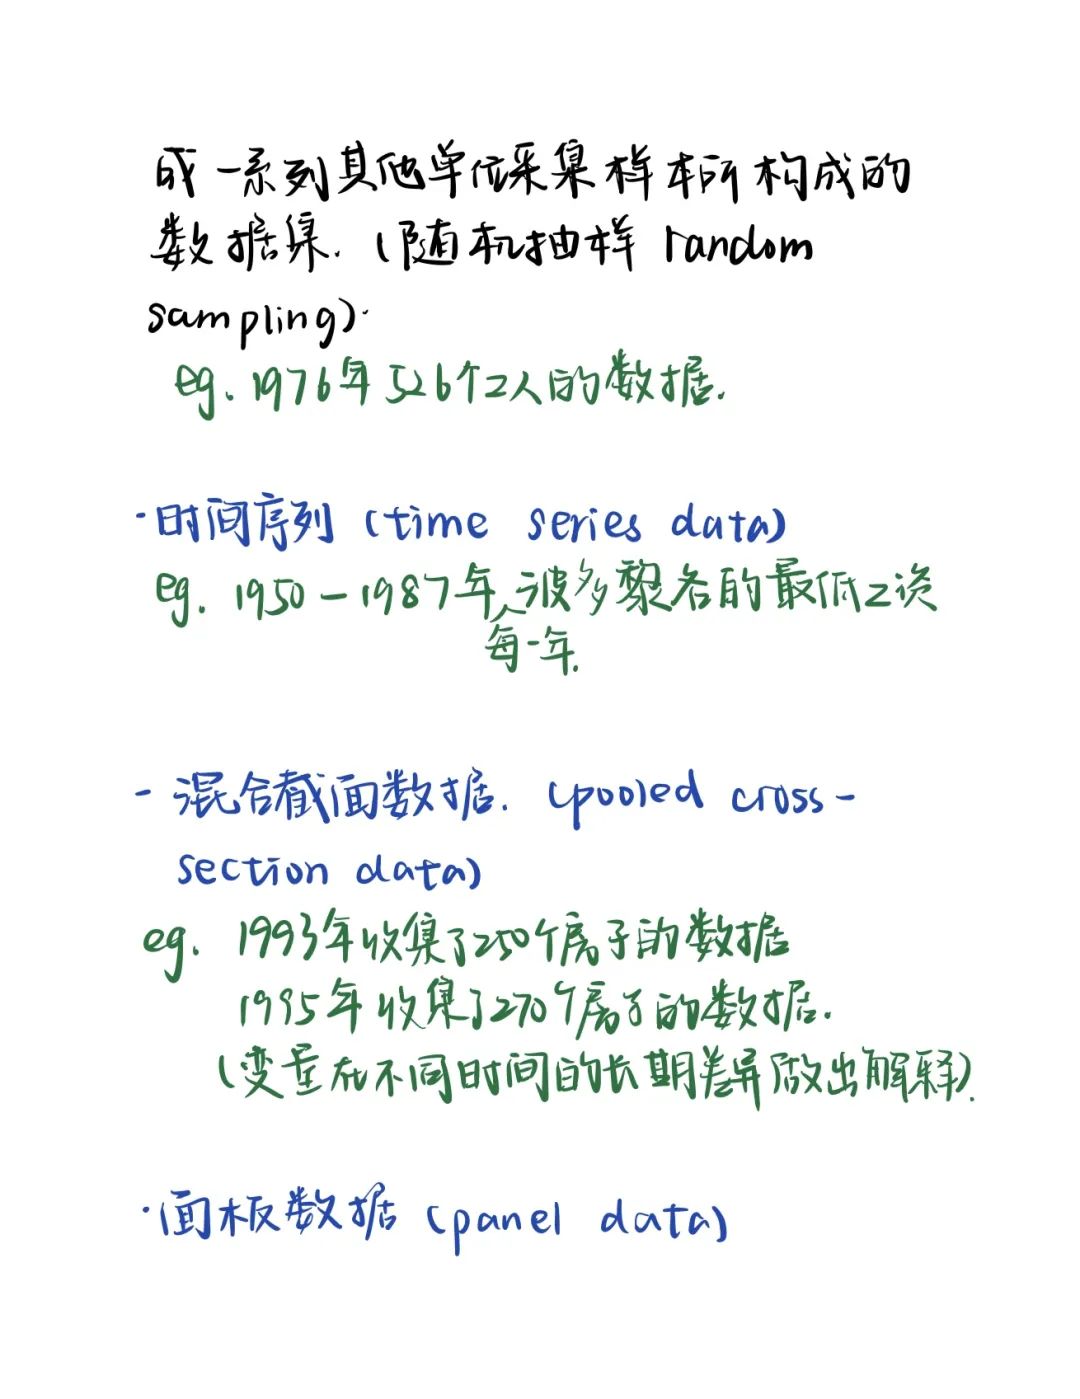 或一系列其他单位采集样本所构成的
数据集.(随机抽样 random
sampling).
eg. 1976年526个工人的数据.
·时间序列 (time series data)
eg. 1950-1987年波多黎各的最低工资
每一年.
- 混合截面数据. (pooled cross-
section data)
eg. 1993年收集了250个房子的数据
1995年收集了270个房子的数据.
(变量在不同时间的长期差异做出解释).
·面板数据 (panel data)